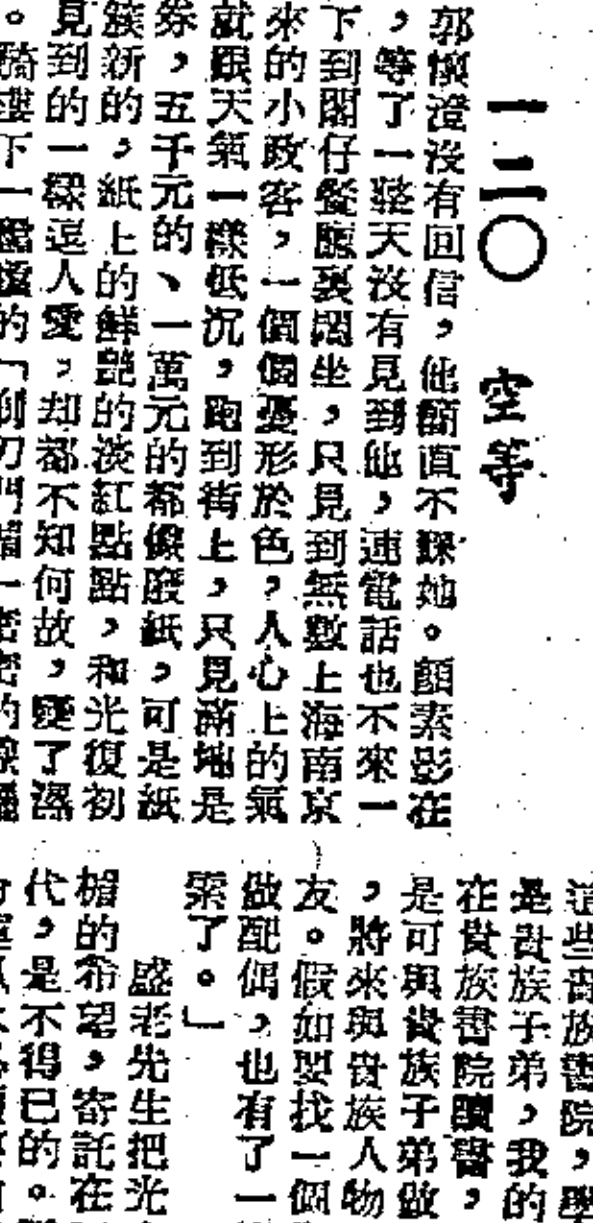 一二〇 空等
郭懷澄沒有回信，他簡直不睬她。顏素影在
，等了一整天沒有見到他，連電話也不來一
下到閣仔餐廳裏閒坐，只見到無數上海南京
來的小政客，一個個憂形於色，人心上的氣
就跟天氣一樣低沉，跑到街上，只見滿地是
券，五千元的、一萬元的都像廢紙，可是紙
簇新的，紙上的鮮艷的淡紅點點，和光復初
見到的一樣逗人愛，却都不知何故，變了
。騎樓下一
這些貴族書院，
是貴族子弟，我的
在貴族書院讀書，
是可與貴族子弟做
，將來與貴族人物
友。假如要找一個
做配偶，也有了一
索了。」
盛老先生把光
楣的希望，寄託在
代，是不得已的。